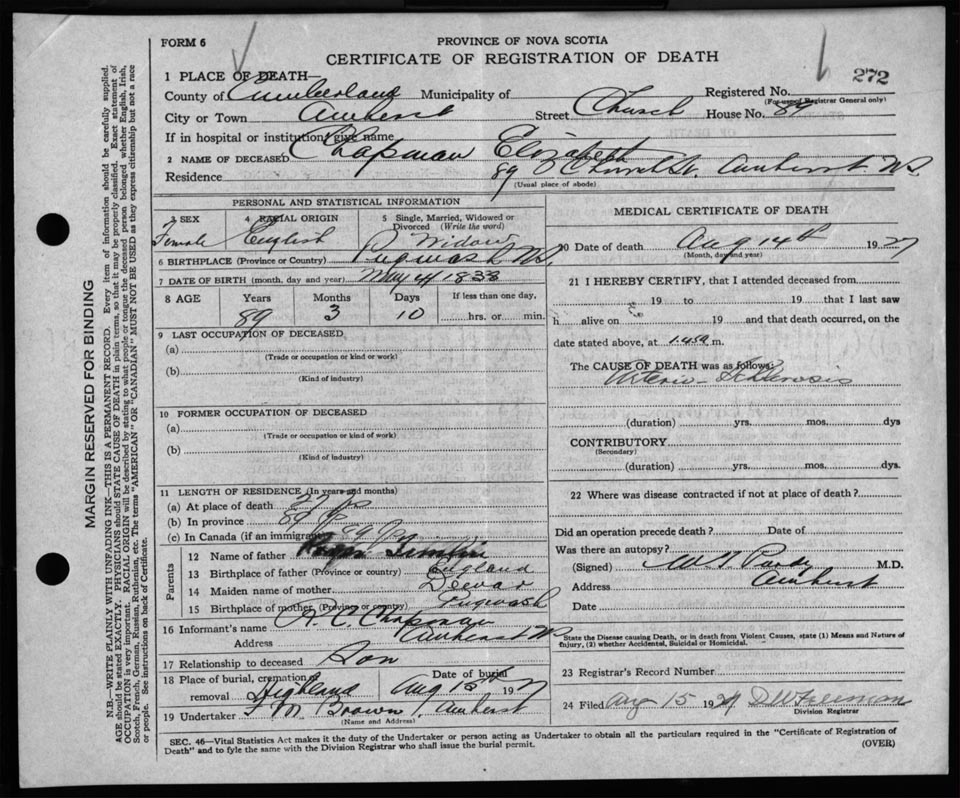 FORM 6
PROVINCE OF NOVA SCOTIA
CERTIFICATE OF REGISTRATION OF DEATH
272
1 PLACE OF DEATH—
County of Cumberland Municipality of Registered No.
(For use of Registrar General only)
City or Town Amherst Street Church House No. 89
If in hospital or institution, give name
2 NAME OF DECEASED Chapman Elizabeth
Residence 89 Church St. Amherst N.S.
(Usual place of abode)
PERSONAL AND STATISTICAL INFORMATION
3 SEX 4 RACIAL ORIGIN 5 Single, Married, Widowed or Divorced (Write the word)
Female English Widow
6 BIRTHPLACE (Province or Country) Pugwash N.S.
7 DATE OF BIRTH (month, day and year) May 4 1838
8 AGE Years Months Days If less than one day,
89 3 10 hrs. or min.
9 LAST OCCUPATION OF DECEASED
(a)
(Trade or occupation or kind or work)
(b)
(Kind of industry)
10 FORMER OCCUPATION OF DECEASED
(a)
(Trade or occupation or kind or work)
(b)
(Kind of industry)
11 LENGTH OF RESIDENCE (In years and months)
(a) At place of death
(b) In province 89
(c) In Canada (if an immigrant) 89
Parents
12 Name of father
13 Birthplace of father (Province or country) England
14 Maiden name of mother Dewar
15 Birthplace of mother (Province or country) Pugwash
16 Informant's name A. C. Chapman
Address Amherst N.S.
17 Relationship to deceased Son
18 Place of burial, cremation, or removal Highland Date of burial Aug 15th 1927
19 Undertaker F. M. Brown, Amherst
(Name and Address)
MEDICAL CERTIFICATE OF DEATH
20 Date of death Aug 14th 1927
(Month, day and year)
21 I HEREBY CERTIFY, that I attended deceased from
19 to 19 that I last saw
h alive on 19 and that death occurred, on the
date stated above, at m.
The CAUSE OF DEATH was as follows:
Arterio-Sclerosis
(duration) yrs. mos. dys
CONTRIBUTORY
(Secondary)
(duration) yrs. mos. dys.
22 Where was disease contracted if not at place of death?
Did an operation precede death? Date of
Was there an autopsy?
(Signed) M.D.
Address Amherst
Date
State the Disease causing Death, or in death from Violent Causes, state (1) Means and Nature of
Injury, (2) whether Accidental, Suicidal or Homicidal.
23 Registrar's Record Number
24 Filed Aug 15 1927
Division Registrar
SEC. 46—Vital Statistics Act makes it the duty of the Undertaker or person acting as Undertaker to obtain all the particulars required in the "Certificate of Registration of
Death" and to fyle the same with the Division Registrar who shall issue the burial permit.
(OVER)
MARGIN RESERVED FOR BINDING
N.B.—WRITE PLAINLY WITH UNFADING INK—THIS IS A PERMANENT RECORD. Every item of information should be carefully supplied.
AGE should be stated EXACTLY. PHYSICIANS should STATE CAUSE OF DEATH in plain terms, so that it may be properly classified. Exact statement of
OCCUPATION is very important. RACIAL ORIGIN will be described by stating to what people or tongue the deceased person belonged whether English, Irish,
Scotch, French, German, Russian, Ruthenian, etc. The terms "AMERICAN" OR "CANADIAN" MUST NOT BE USED as they express citizenship but not a race
or people. See instructions on back of Certificate.